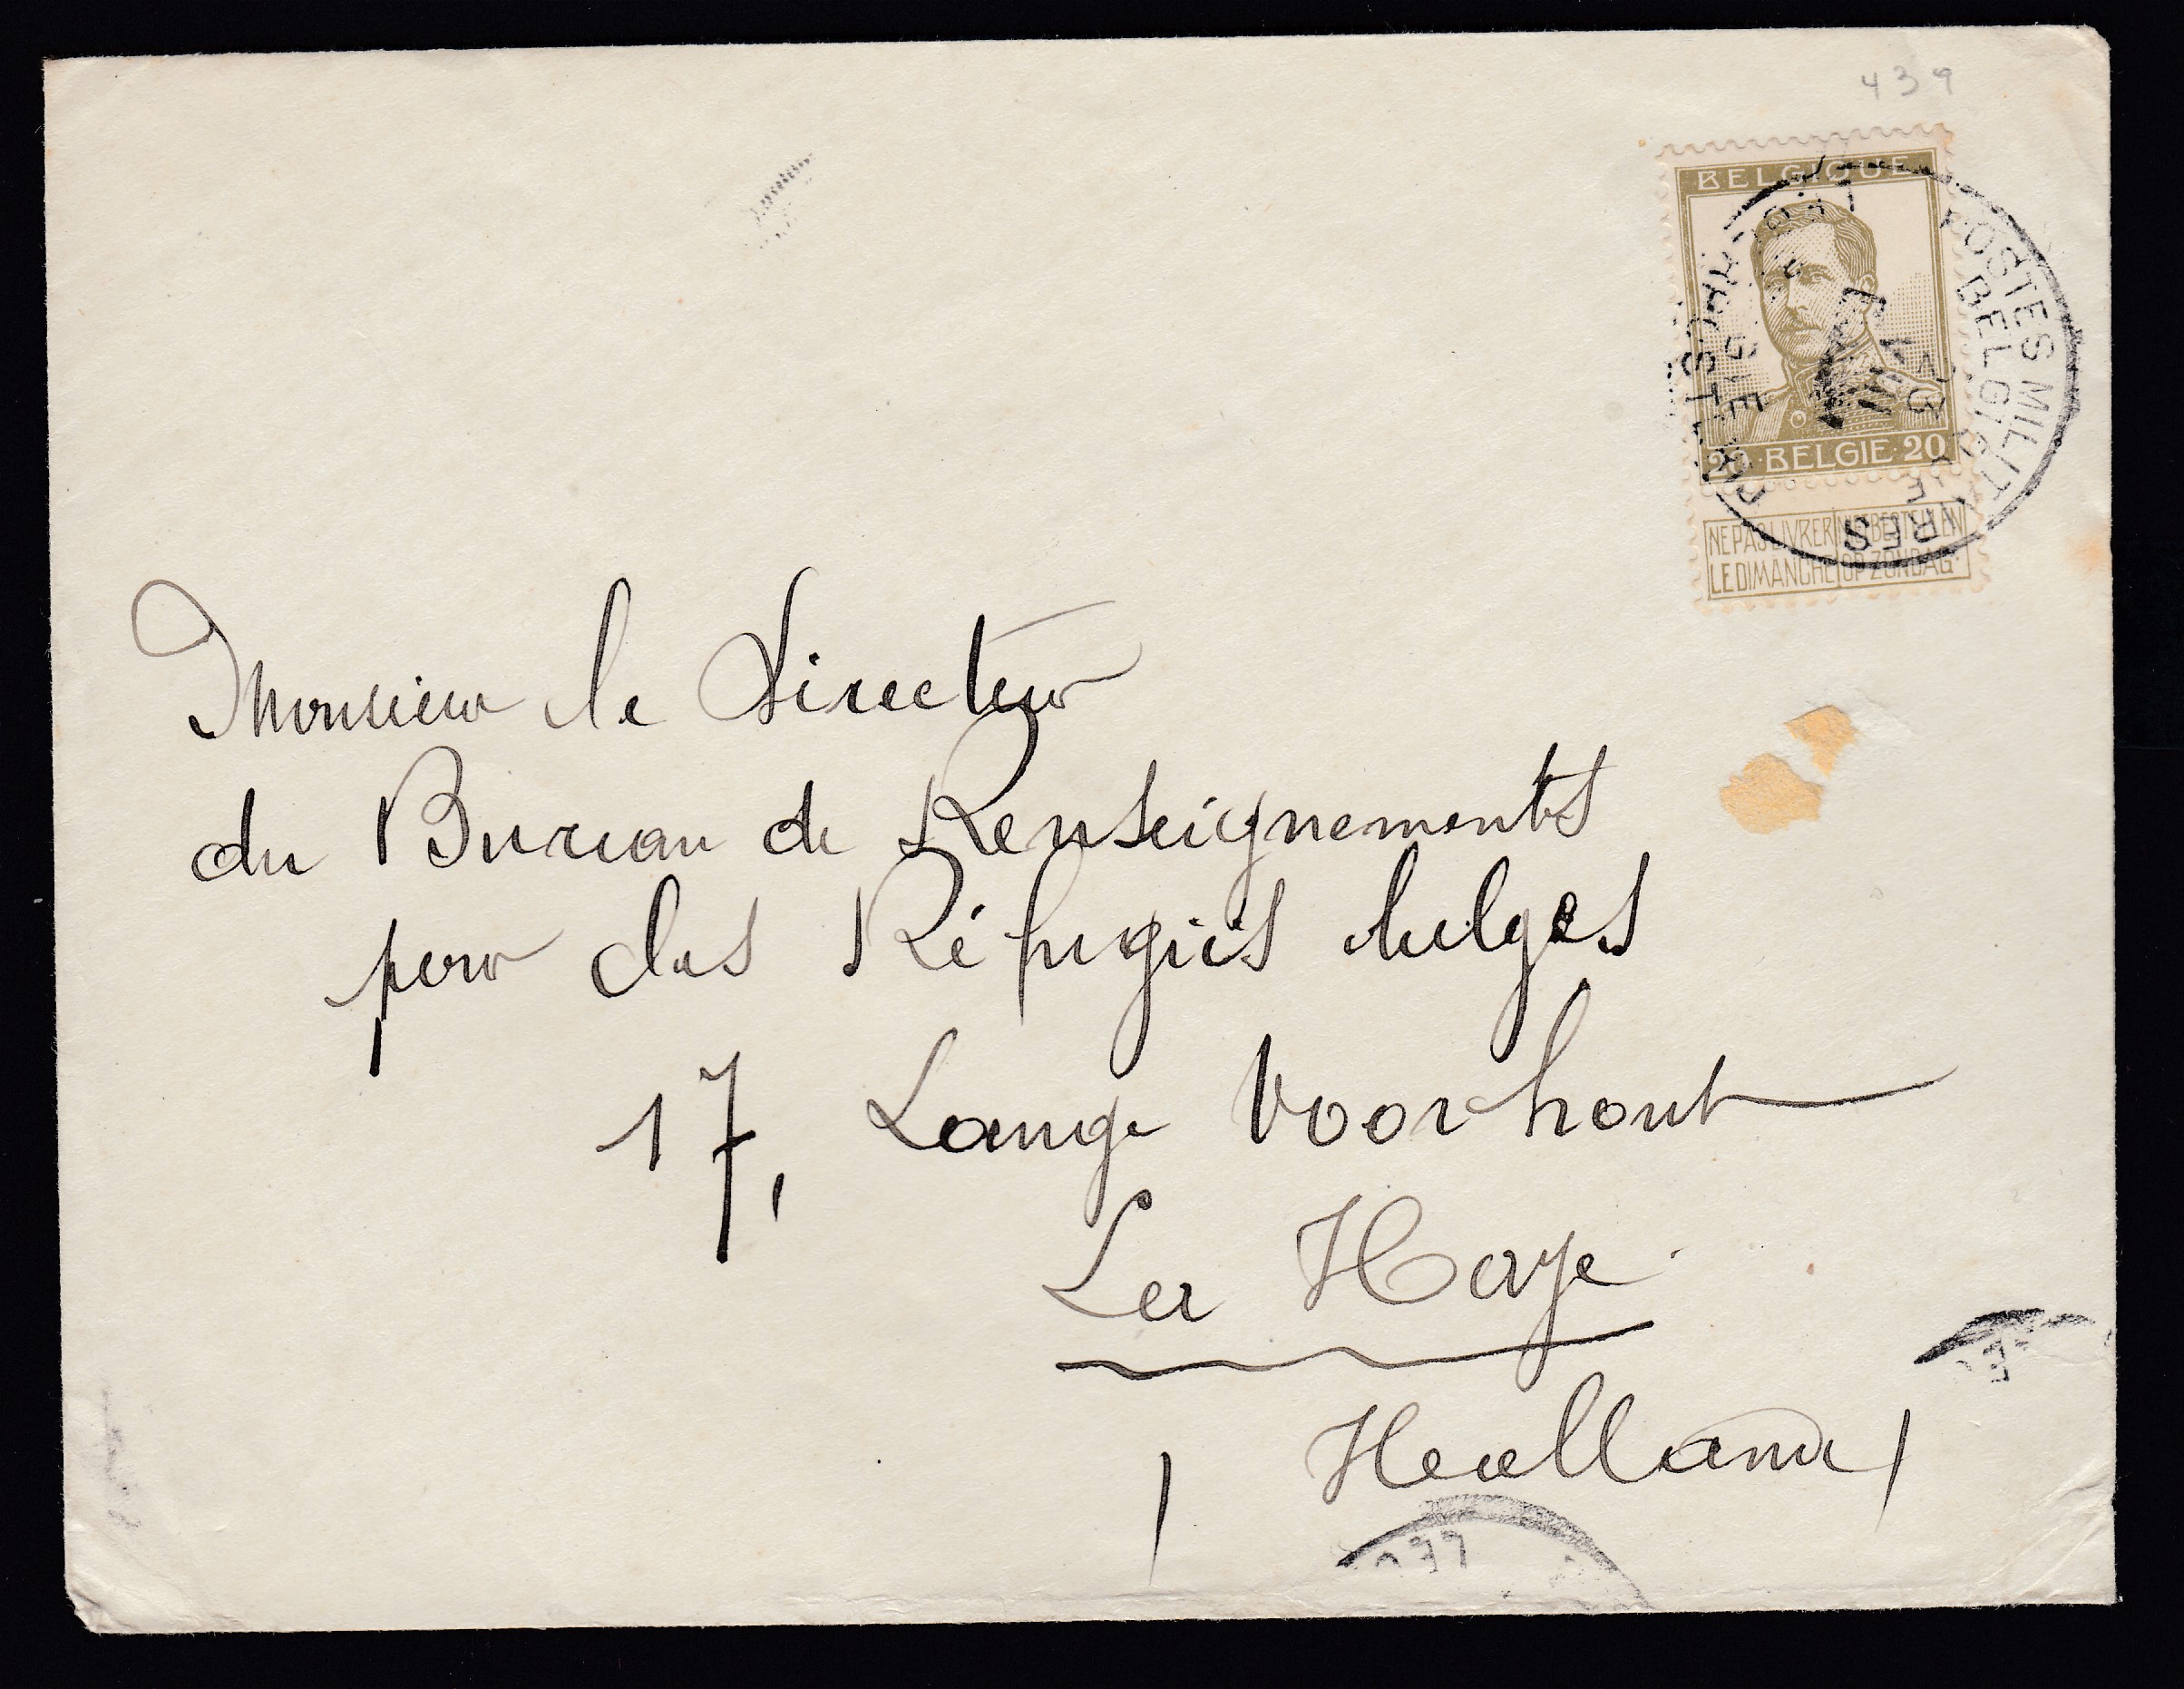 439
BELGIQUE
20 BELGIE 20
NE PAS LIVRER LE DIMANCHE
NIET BESTELLEN OP ZONDAG
POSTES MILITAIRES
BELGIQUE
Monsieur le Directeur
du Bureau de Renseignements
pour les Réfugiés belges
17, Lange Voorhout
La Haye
Hollande